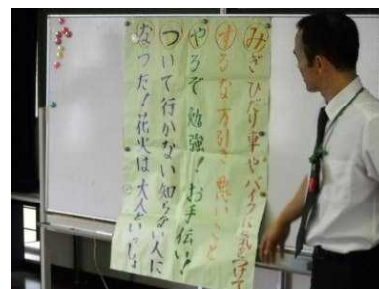 みぎひだり車やバイクに気をつけて
するな万引き悪いこと
やるぞ勉強!お手伝い!
ついて行かない知らない人に
なつだ!花火は大人といっしょ